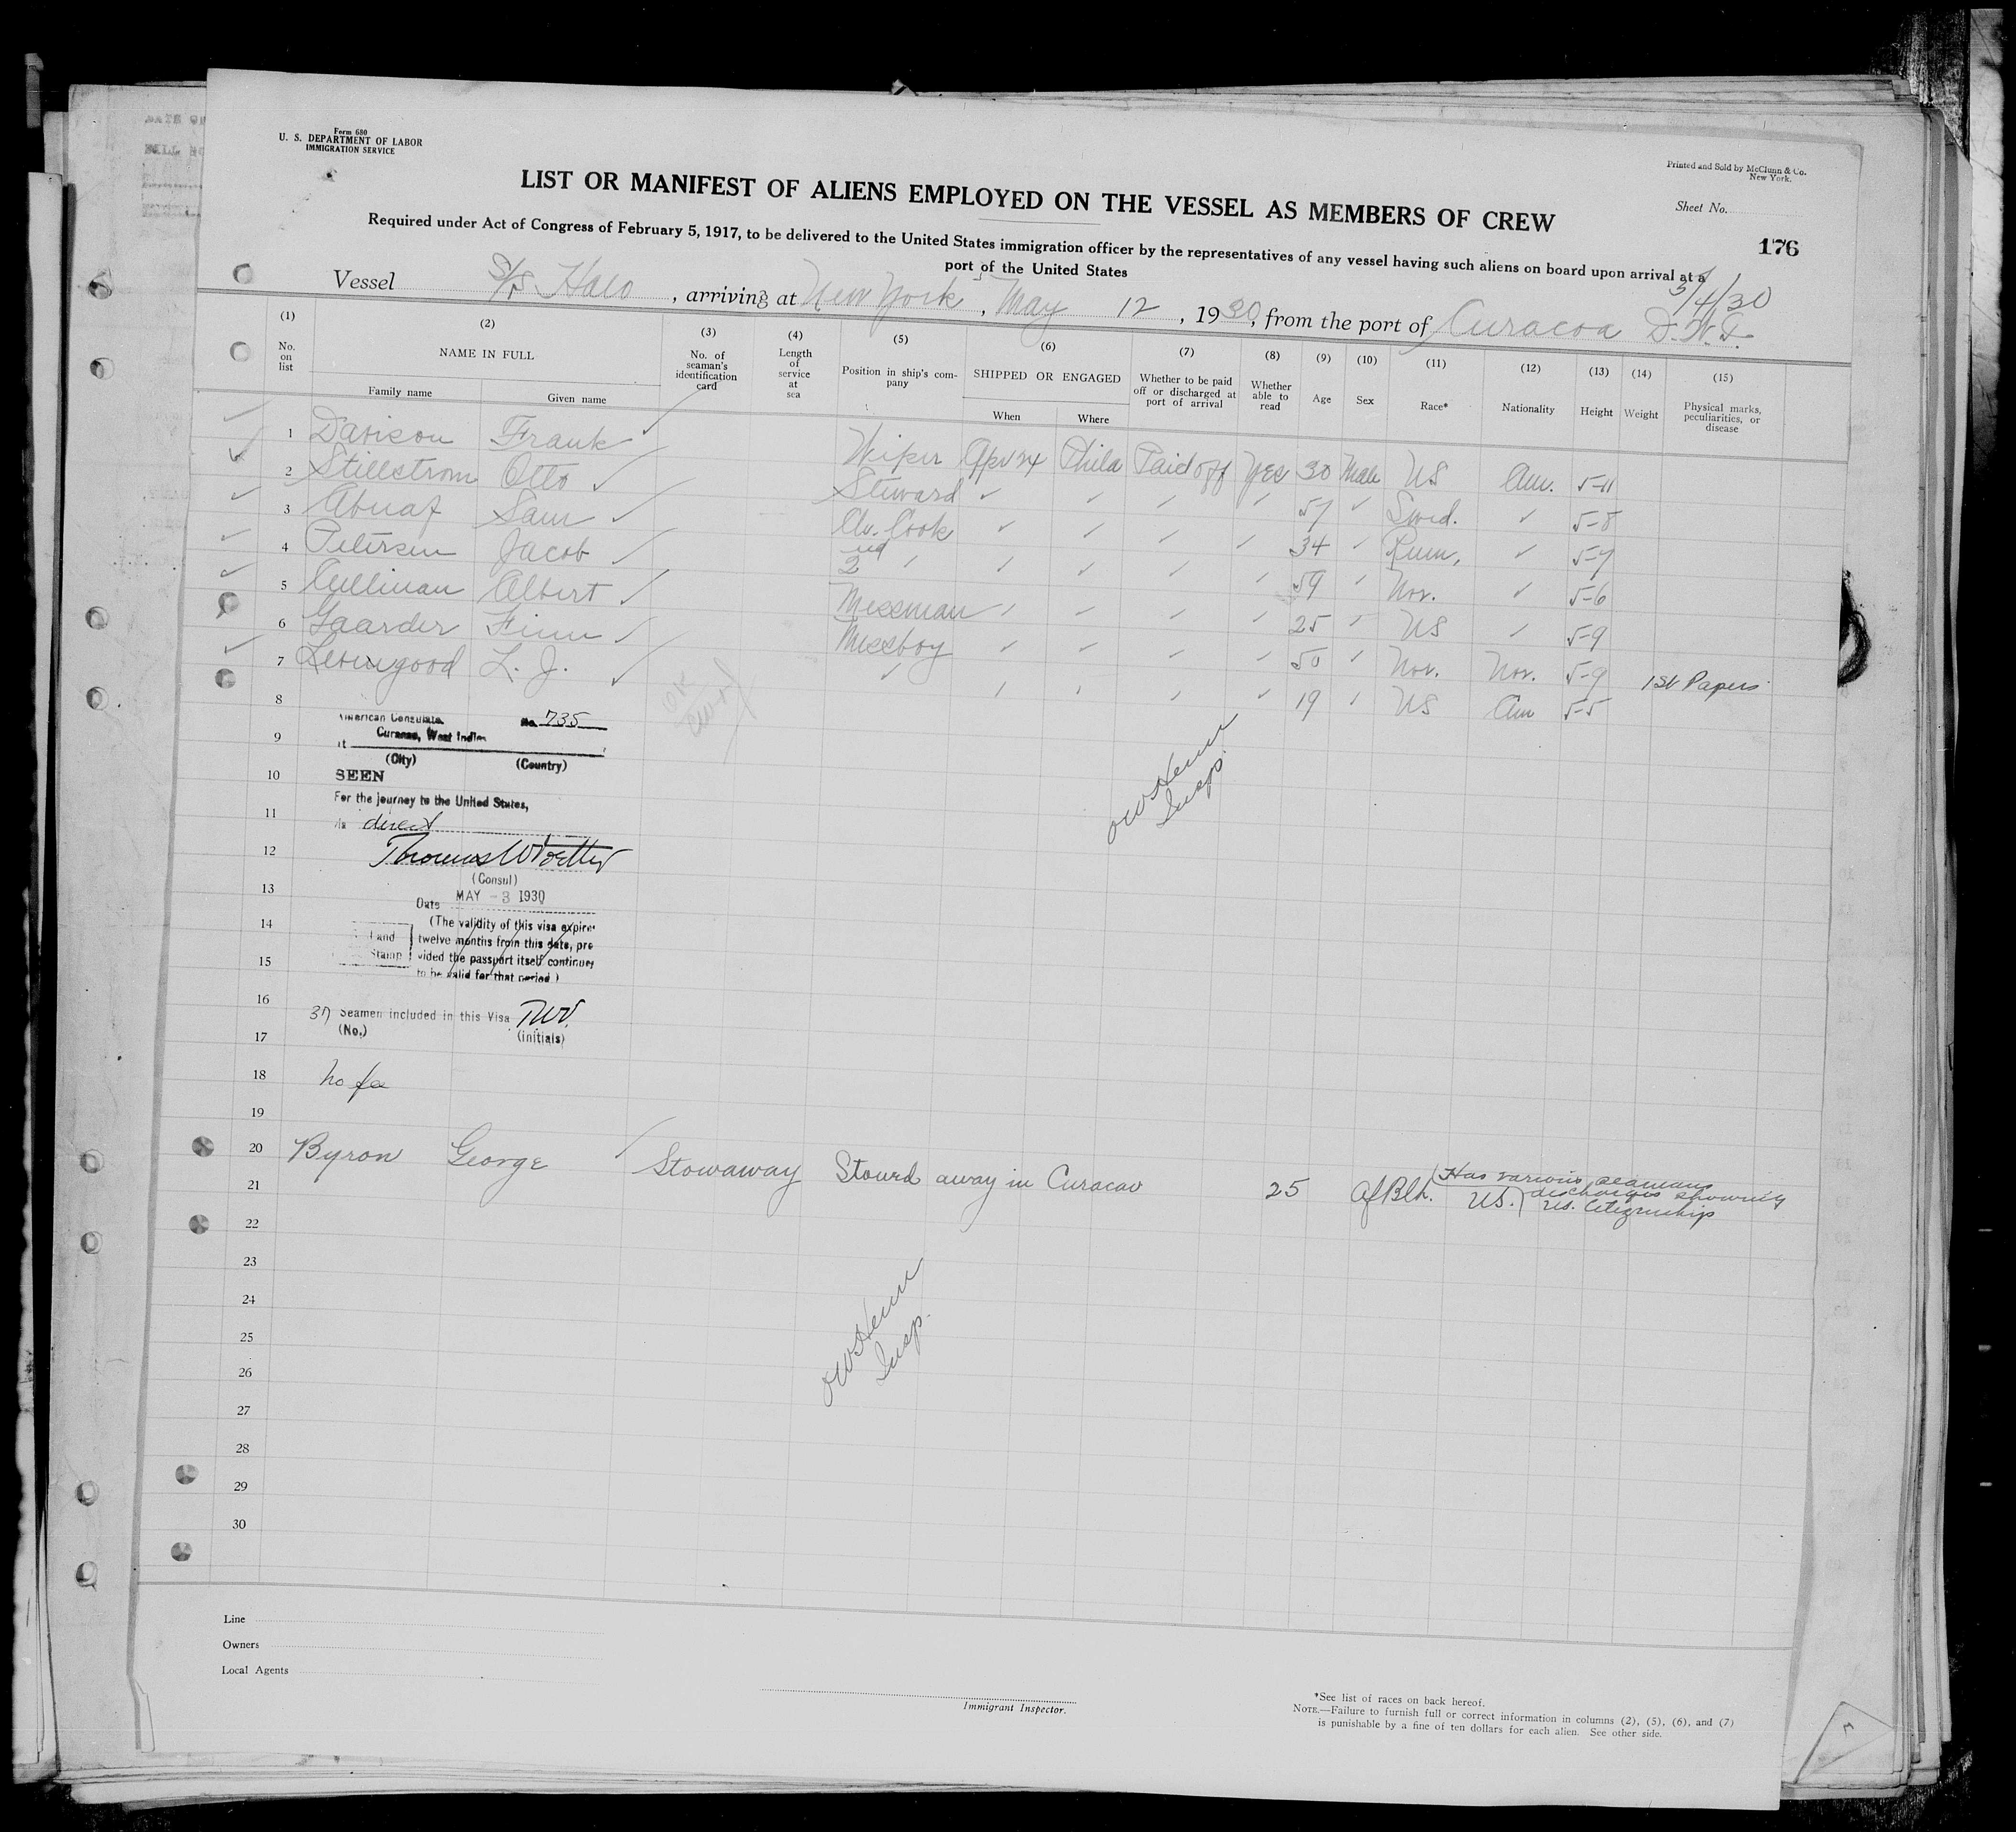 Form 680
U. S. DEPARTMENT OF LABOR
IMMIGRATION SERVICE
Printed and Sold by McClunn & Co.
New York.
LIST OR MANIFEST OF ALIENS EMPLOYED ON THE VESSEL AS MEMBERS OF CREW
Sheet No.
Required under Act of Congress of February 5, 1917, to be delivered to the United States immigration officer by the representatives of any vessel having such aliens on board upon arrival at a
port of the United States
176
5/4/30
Vessel S/S Halo, arriving at New York, May 12, 1930, from the port of Curacoa D.W.I.
(1) (2) (3) (4) (5) (6) (7) (8) (9) (10) (11) (12) (13) (14) (15)
No. on list NAME IN FULL No. of seaman's identification card Length of service at sea Position in ship's company SHIPPED OR ENGAGED Whether to be paid off or discharged at port of arrival Whether able to read Age Sex Race* Nationality Height Weight Physical marks, peculiarities, or disease
Family name Given name When Where
1 Davison Frank Wiper Apr 24 Phila Paid off Yes 30 Male US Am. 5-11
2 Stillstrom Otto Steward 57 Swed. 5-8
3 Abuaf Sam Ch. Cook 34 Rum. 5-7
4 Petersen Jacob 2nd 59 Nor. 5-6
5 Cullinan Albert Messman 25 US 5-9
6 Gaarder Finn Messboy 50 Nor. Nor. 5-9 1st Papers
7 L. J. 19 US Am 5-5
8
American Consulate, No. 735
9
Curacao, West Indies
at
(City) (Country)
10
SEEN
For the journey to the United States,
11
via direct
12
(Consul)
13
Date MAY -3 1930
14
(The validity of this visa expires
twelve months from this date, pro
15
vided the passport itself continues
to be valid for that period.)
Stamp
16
37 Seamen included in this Visa TWV.
(No.) (initials)
17
18
no fee
19
20 Byron George Stowaway Stowed away in Curacao 25 Af Blk. US. (Has various seamans
discharges showing
US. Citizenship
21
22
23
24
Insp.
25
26
27
28
29
30
Line
Owners
Local Agents
Immigrant Inspector.
*See list of races on back hereof.
NOTE.—Failure to furnish full or correct information in columns (2), (5), (6), and (7)
is punishable by a fine of ten dollars for each alien. See other side.